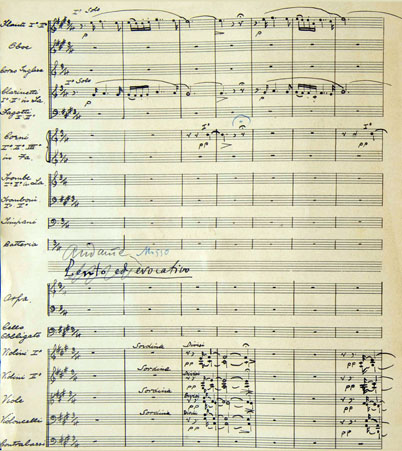 Flauti I° II°   I° Solo
p   p
Oboe
Corno Inglese
Clarinetti   I° Solo
I° II° in La
p   p
Fagotti
I° II°
Corni   I°
in Fa   pp   pp
Trombe
I° II° in La
Tromboni
I° II°
Timpani
Batteria
Andante Misso
Lento ed evocativo
Arpa
Cello
Obbligato
Violini I°   Sordina   Divisi
pp   pp
Violini II°   Sordina   Divisi
pp   pp
Viole   Sordina   Divisi
pp   pp
Violoncelli   Sordina   Divisi
pp   pp
Contrabassi